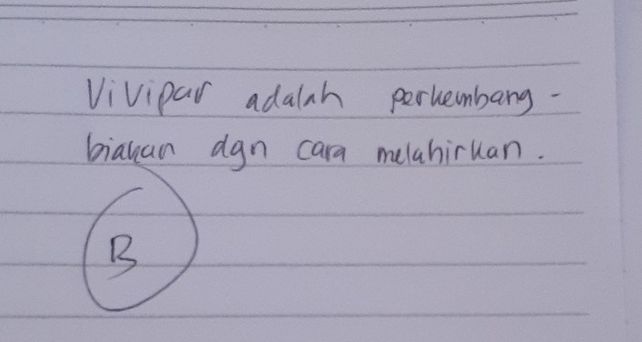 Vivipar adalah perkembang -
biakan dgn cara melahirkan.
B